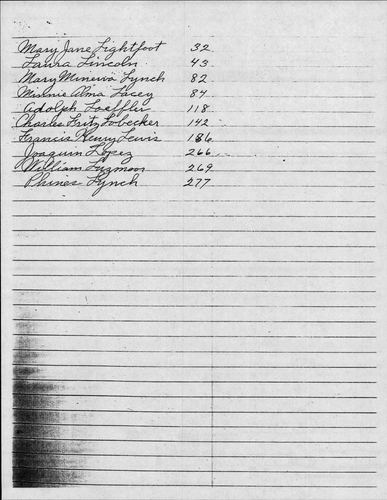 Mary Jane Lightfoot 32
Laura Lincoln 43
Mary Minerva Lynch 82
Minnie Alma Lacey 84
Adolph Loeffler 118
Charles Fritz Lobecker 142
Francis Henry Lewis 186
Joaquin Lopez 266
William Luzmoor 269
Phines Lynch 277